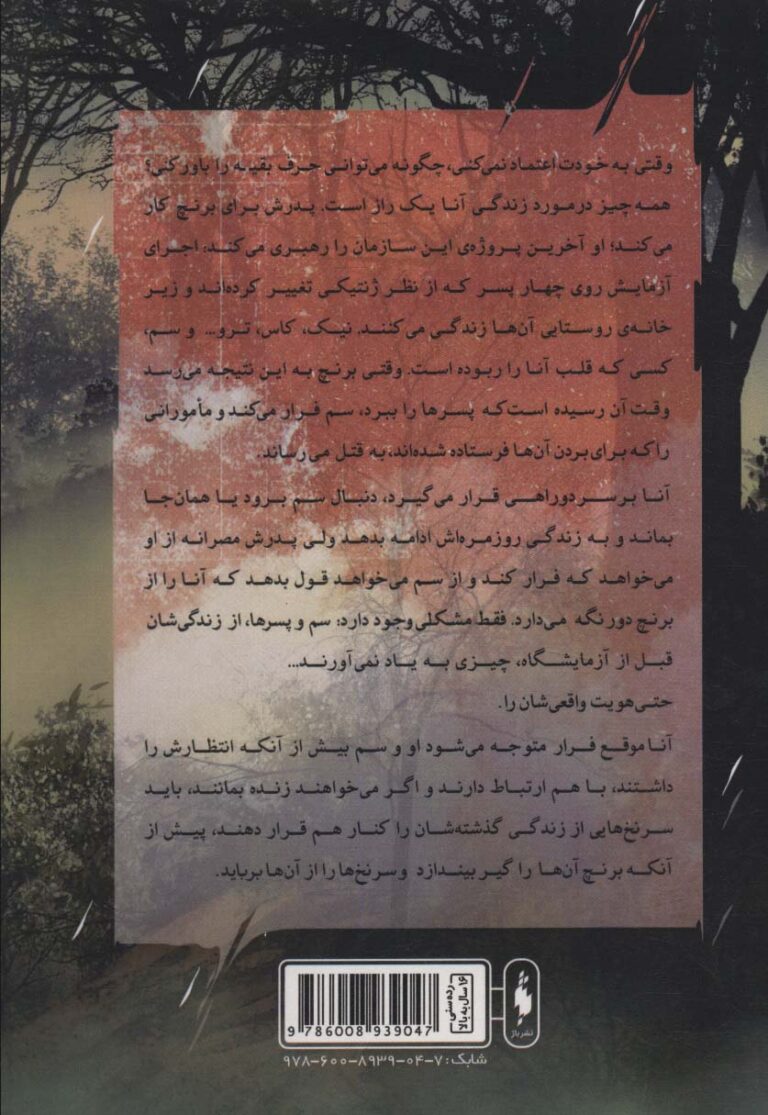 وقتی به خودت اعتماد نمی‌کنی، چگونه می‌توانی حرف بقیه را باور کنی؟
همه چیز درمورد زندگی آنا یک راز است. پدرش برای برنچ کار
می‌کند؛ او آخرین پروژه‌ی این سازمان را رهبری می‌کند، اجرای
آزمایش روی چهار پسر که از نظر ژنتیکی تغییر کرده‌اند و زیر
خانه‌ی روستایی آن‌ها زندگی می‌کنند. نیک، کاس، ترو... و سم،
کسی که قلب آنا را ربوده است. وقتی برنچ به این نتیجه می‌رسد
وقت آن رسیده است که پسرها را ببرد، سم فرار می‌کند و مأمورانی
را که برای بردن آن‌ها فرستاده شده‌اند، به قتل می‌رساند.
آنا بر سر دوراهی قرار می‌گیرد، دنبال سم برود یا همان‌جا
بماند و به زندگی روزمره‌اش ادامه بدهد ولی پدرش مصرانه از او
می‌خواهد که فرار کند و از سم می‌خواهد قول بدهد که آنا را از
برنچ دور نگه می‌دارد. فقط مشکلی وجود دارد: سم و پسرها، از زندگی‌شان
قبل از آزمایشگاه، چیزی به یاد نمی‌آورند...
حتی هویت واقعی‌شان را.
آنا موقع فرار متوجه می‌شود او و سم بیش از آنکه انتظارش را
داشتند، با هم ارتباط دارند و اگر می‌خواهند زنده بمانند، باید
سرنخ‌هایی از زندگی گذشته‌شان را کنار هم قرار دهند، پیش از
آنکه برنچ آن‌ها را گیر بیندازد و سرنخ‌ها را از آن‌ها برباید.
رده‌سنی
۱۶ سال به بالا
نشر باژ
9 786008 939047
شابک: ۹۷۸-۶۰۰-۸۹۳۹-۰۴-۷